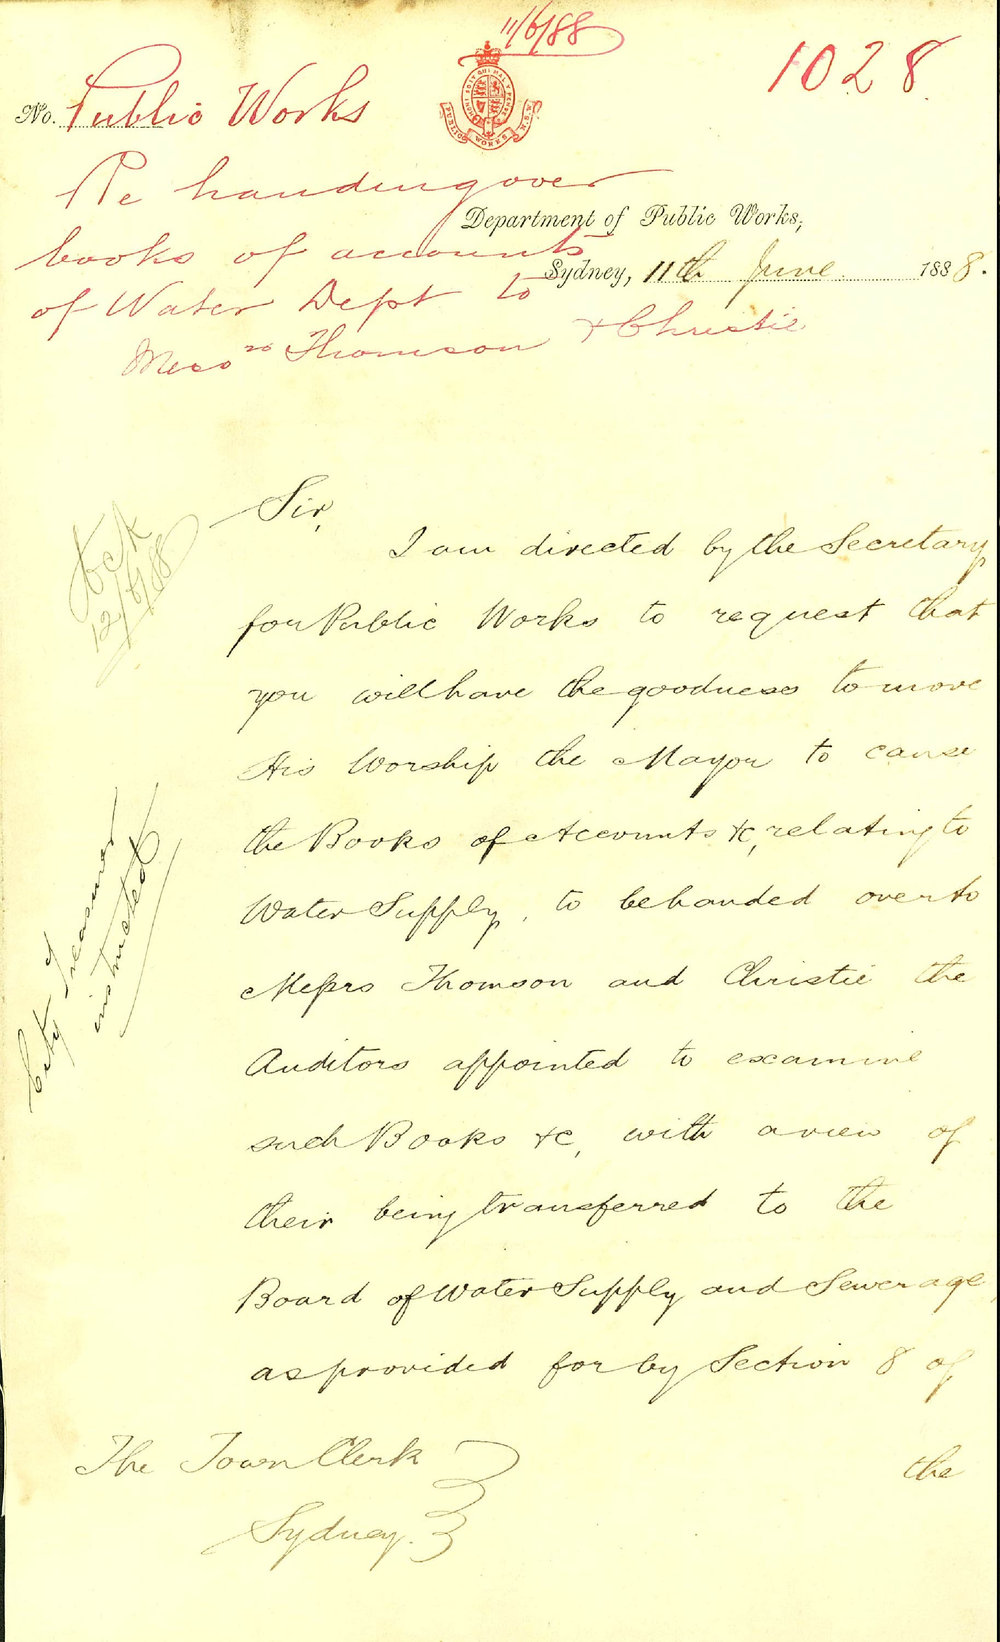 11/6/88
1028
No. Public Works
PUBLIC WORKS N.S.W.
Re handing over
Department of Public Works,
books of accounts
Sydney, 11th June 1888.
of Water Dept to
Messrs Thomson & Christie
Sir,
I am directed by the Secretary
for Public Works to request that
you will have the goodness to move
His Worship the Mayor to cause
the Books of Accounts &c, relating to
Water Supply, to be handed over to
Messrs Thomson and Christie the
Auditors appointed to examine
such Books &c, with a view of
their being transferred to the
Board of Water Supply and Sewerage,
as provided for by Section 8 of
the
The Town Clerk
Sydney.
12/6/88
City Treasurer
instructed